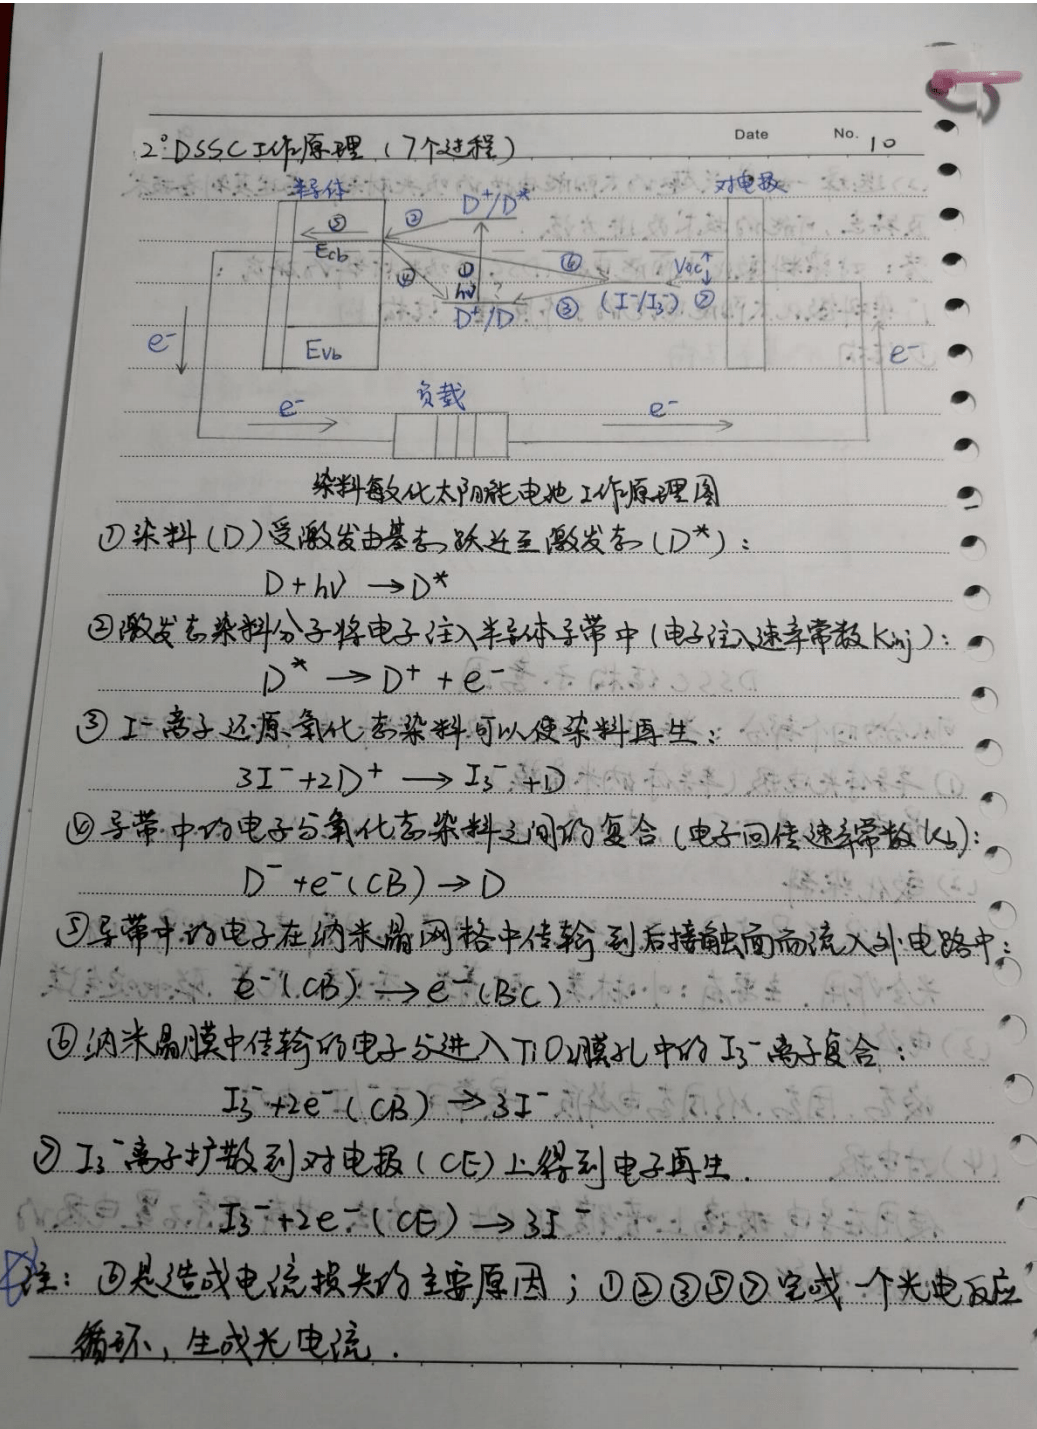 Date
No. 10
2° DSSC工作原理（7个过程）
半导体
对电极
D⁺/D*
⑤
②
Ecb
①
⑥
Voc
④
hν
③
(I⁻/I₃⁻)
⑦
D⁺/D
e⁻
Evb
e⁻
负载
e⁻
e⁻
染料敏化太阳能电池工作原理图
①染料(D)受激发由基态跃迁至激发态(D*)：
D+hν → D*
②激发态染料分子将电子注入半导体导带中(电子注入速率常数Kinj)：
D* → D⁺ + e⁻
③ I⁻离子还原氧化态染料可以使染料再生：
3I⁻+2D⁺ → I₃⁻+D
④导带中的电子与氧化态染料之间的复合(电子回传速率常数Kb)：
D⁻+e⁻(CB) → D
⑤导带中的电子在纳米晶网格中传输到后接触面而流入外电路中：
e⁻(CB) → e⁻(BC)
⑥纳米晶膜中传输的电子与进入TiO₂膜孔中的I₃⁻离子复合：
I₃⁻+2e⁻(CB) → 3I⁻
⑦ I₃⁻离子扩散到对电极(CE)上得到电子再生.
I₃⁻+2e⁻(CE) → 3I⁻
注：是造成电流损失的主要原因；①②③⑤⑦完成一个光电反应
循环，生成光电流.